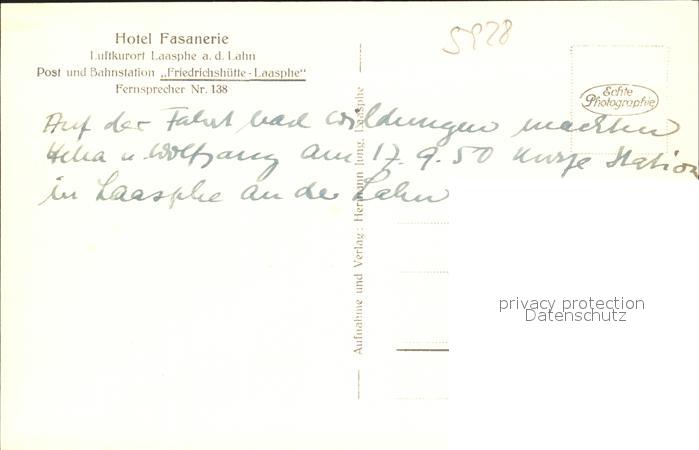 Hotel Fasanerie
Luftkurort Laasphe a. d. Lahn
Post und Bahnstation „Friedrichshütte-Laasphe"
Fernsprecher Nr. 138
5928
Echte
Photographie
Auf der Fahrt bad Wildungen machten
u. Wolfgang am 17.9.50 kurze Station
in Laasphe an der Lahn
Aufnahme und Verlag: Hermann Jung, Laasphe
privacy protection
Datenschutz